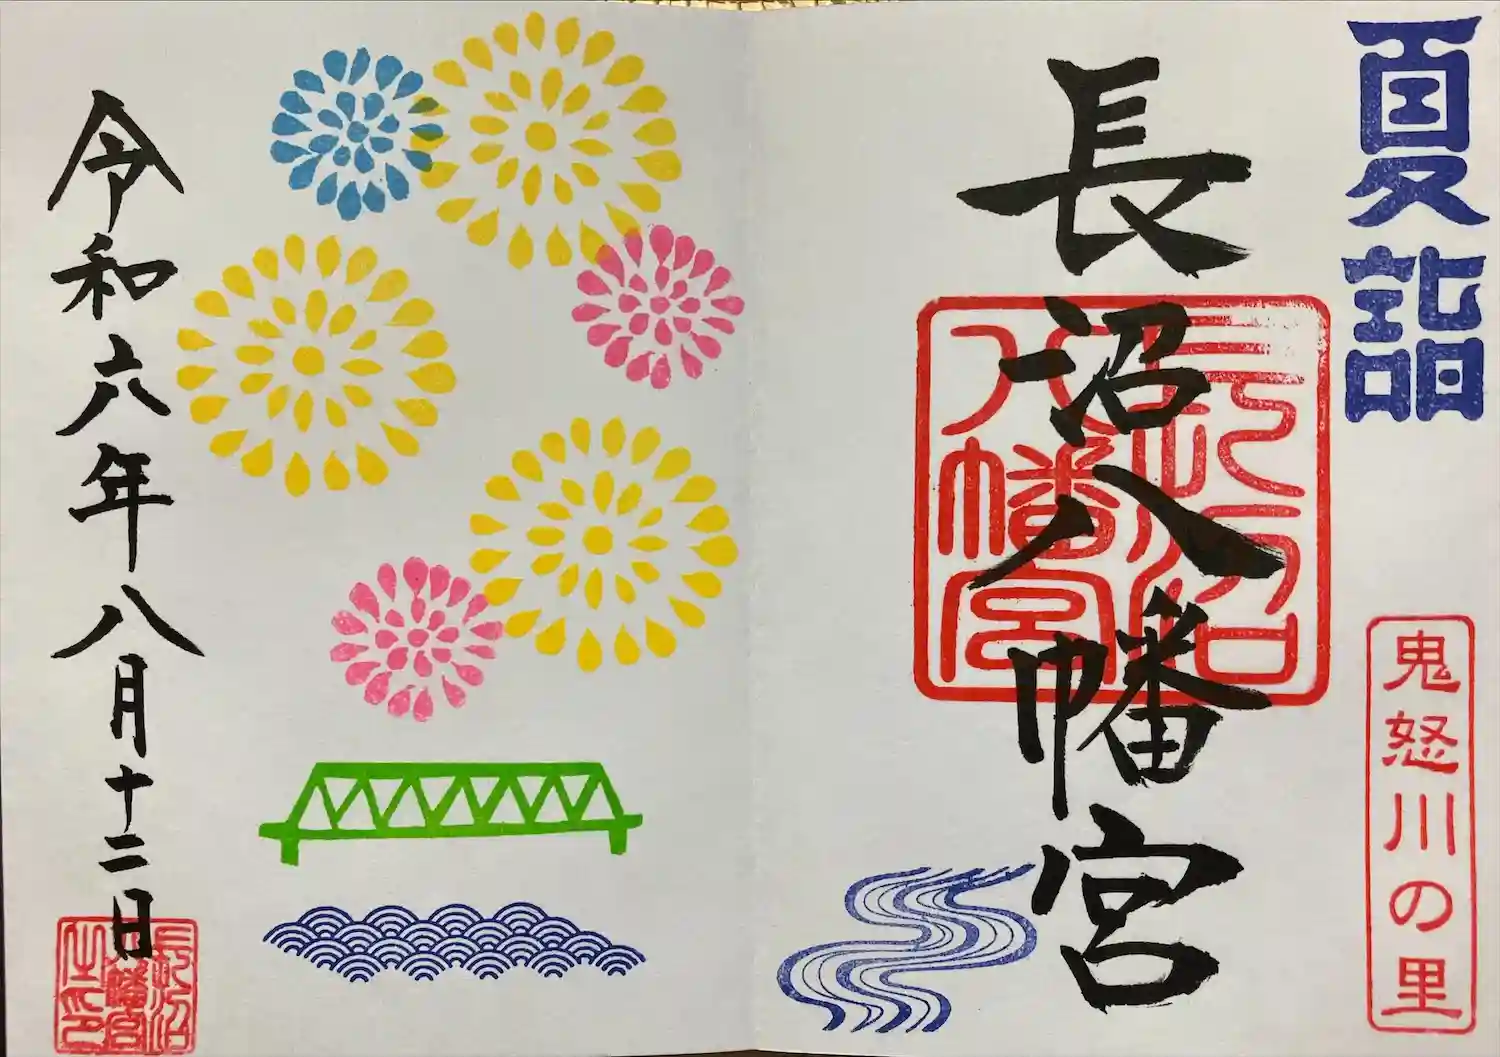 夏詣
鬼怒川の里
長沼八幡宮
長沼
八幡宮
令和六年八月十二日
長沼
八幡宮
之印